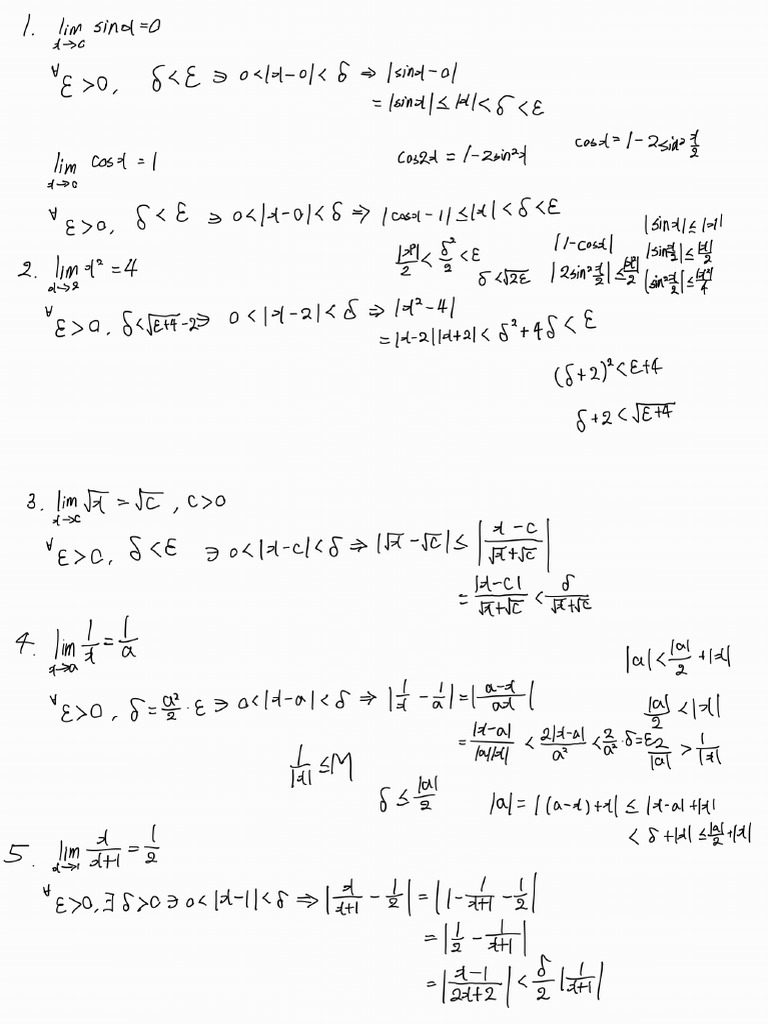 1. lim_{x→0} sin x = 0
∀ε>0, δ<ε ∋ 0<|x-0|<δ ⇒ |sin x-0|
= |sin x| ≤ |x| < δ < ε
lim_{x→0} cos x = 1
cos2x = 1-2sin²x
cos x = 1-2sin² x/2
∀ε>0, δ<ε ∋ 0<|x-0|<δ ⇒ |cos x-1| ≤ |x| < δ < ε
|x²|/2 < δ²/2 < ε
δ<√2ε
|1-cos x|
|2sin² x/2| ≤ |x²|/2
|sin x| ≤ |x|
|sin x/2| ≤ |x|/2
|sin² x/2| ≤ |x²|/4
2. lim_{x→2} x² = 4
∀ε>0, δ<√ε+4-2 ∋ 0<|x-2|<δ ⇒ |x²-4|
= |x-2||x+2| < δ²+4δ < ε
(δ+2)² < ε+4
δ+2 < √ε+4
3. lim_{x→c} √x = √c, c>0
∀ε>0, δ<ε ∋ 0<|x-c|<δ ⇒ |√x-√c| ≤ |x-c / √x+√c|
= |x-c| / √x+√c < δ / √x+√c
4. lim_{x→a} 1/x = 1/a
∀ε>0, δ = a²/2 · ε ∋ 0<|x-a|<δ ⇒ |1/x - 1/a| = |a-x / ax|
= |x-a| / |a||x| < 2|x-a| / a² < 2/a² · δ = ε
1/|x| ≤ M
δ ≤ |a|/2
|a| < |a|/2 + |x|
|a|/2 < |x|
2/|a| > 1/|x|
|a| = |(a-x)+x| ≤ |x-a|+|x|
< δ+|x| ≤ |a|/2+|x|
5. lim_{x→1} x/x+1 = 1/2
∀ε>0, ∃δ>0 ∋ 0<|x-1|<δ ⇒ |x/x+1 - 1/2| = |1 - 1/x+1 - 1/2|
= |1/2 - 1/x+1|
= |x-1 / 2x+2| < δ/2 |1/x+1|